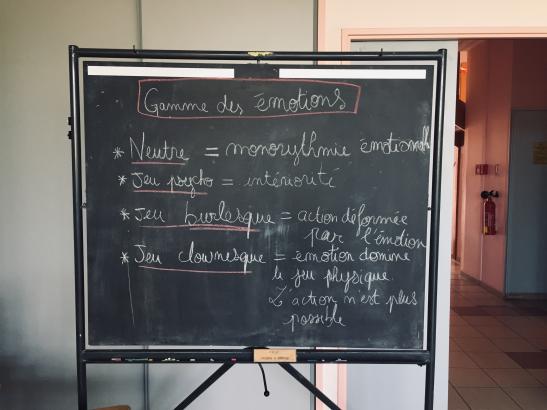 Gamme des émotions
* Neutre = monorythmie émotionnelle
* Jeu psycho = intériorité
* Jeu burlesque = action déformée
par l'émotion
* Jeu clownesque = émotion domine
le jeu physique.
L'action n'est plus
possible